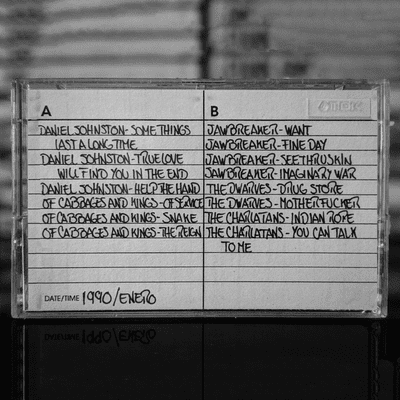 A
DANIEL JOHNSTON - SOME THINGS
LAST A LONG TIME
DANIEL JOHNSTON - TRUE LOVE
WILL FIND YOU IN THE END
DANIEL JOHNSTON - HELP THE HAND
OF CABBAGES AND KINGS - OF SERVICE
OF CABBAGES AND KINGS - SNAKE
OF CABBAGES AND KINGS - THE REIGN
B
JAWBREAKER - WANT
JAWBREAKER - FINE DAY
JAWBREAKER - SEETHRU SKIN
JAWBREAKER - IMAGINARY WAR
THE DWARVES - DRUG STORE
THE DWARVES - MOTHERFUCKER
THE CHARLATANS - INDIAN ROPE
THE CHARLATANS - YOU CAN TALK
TO ME
DATE/TIME 1990/ENERO